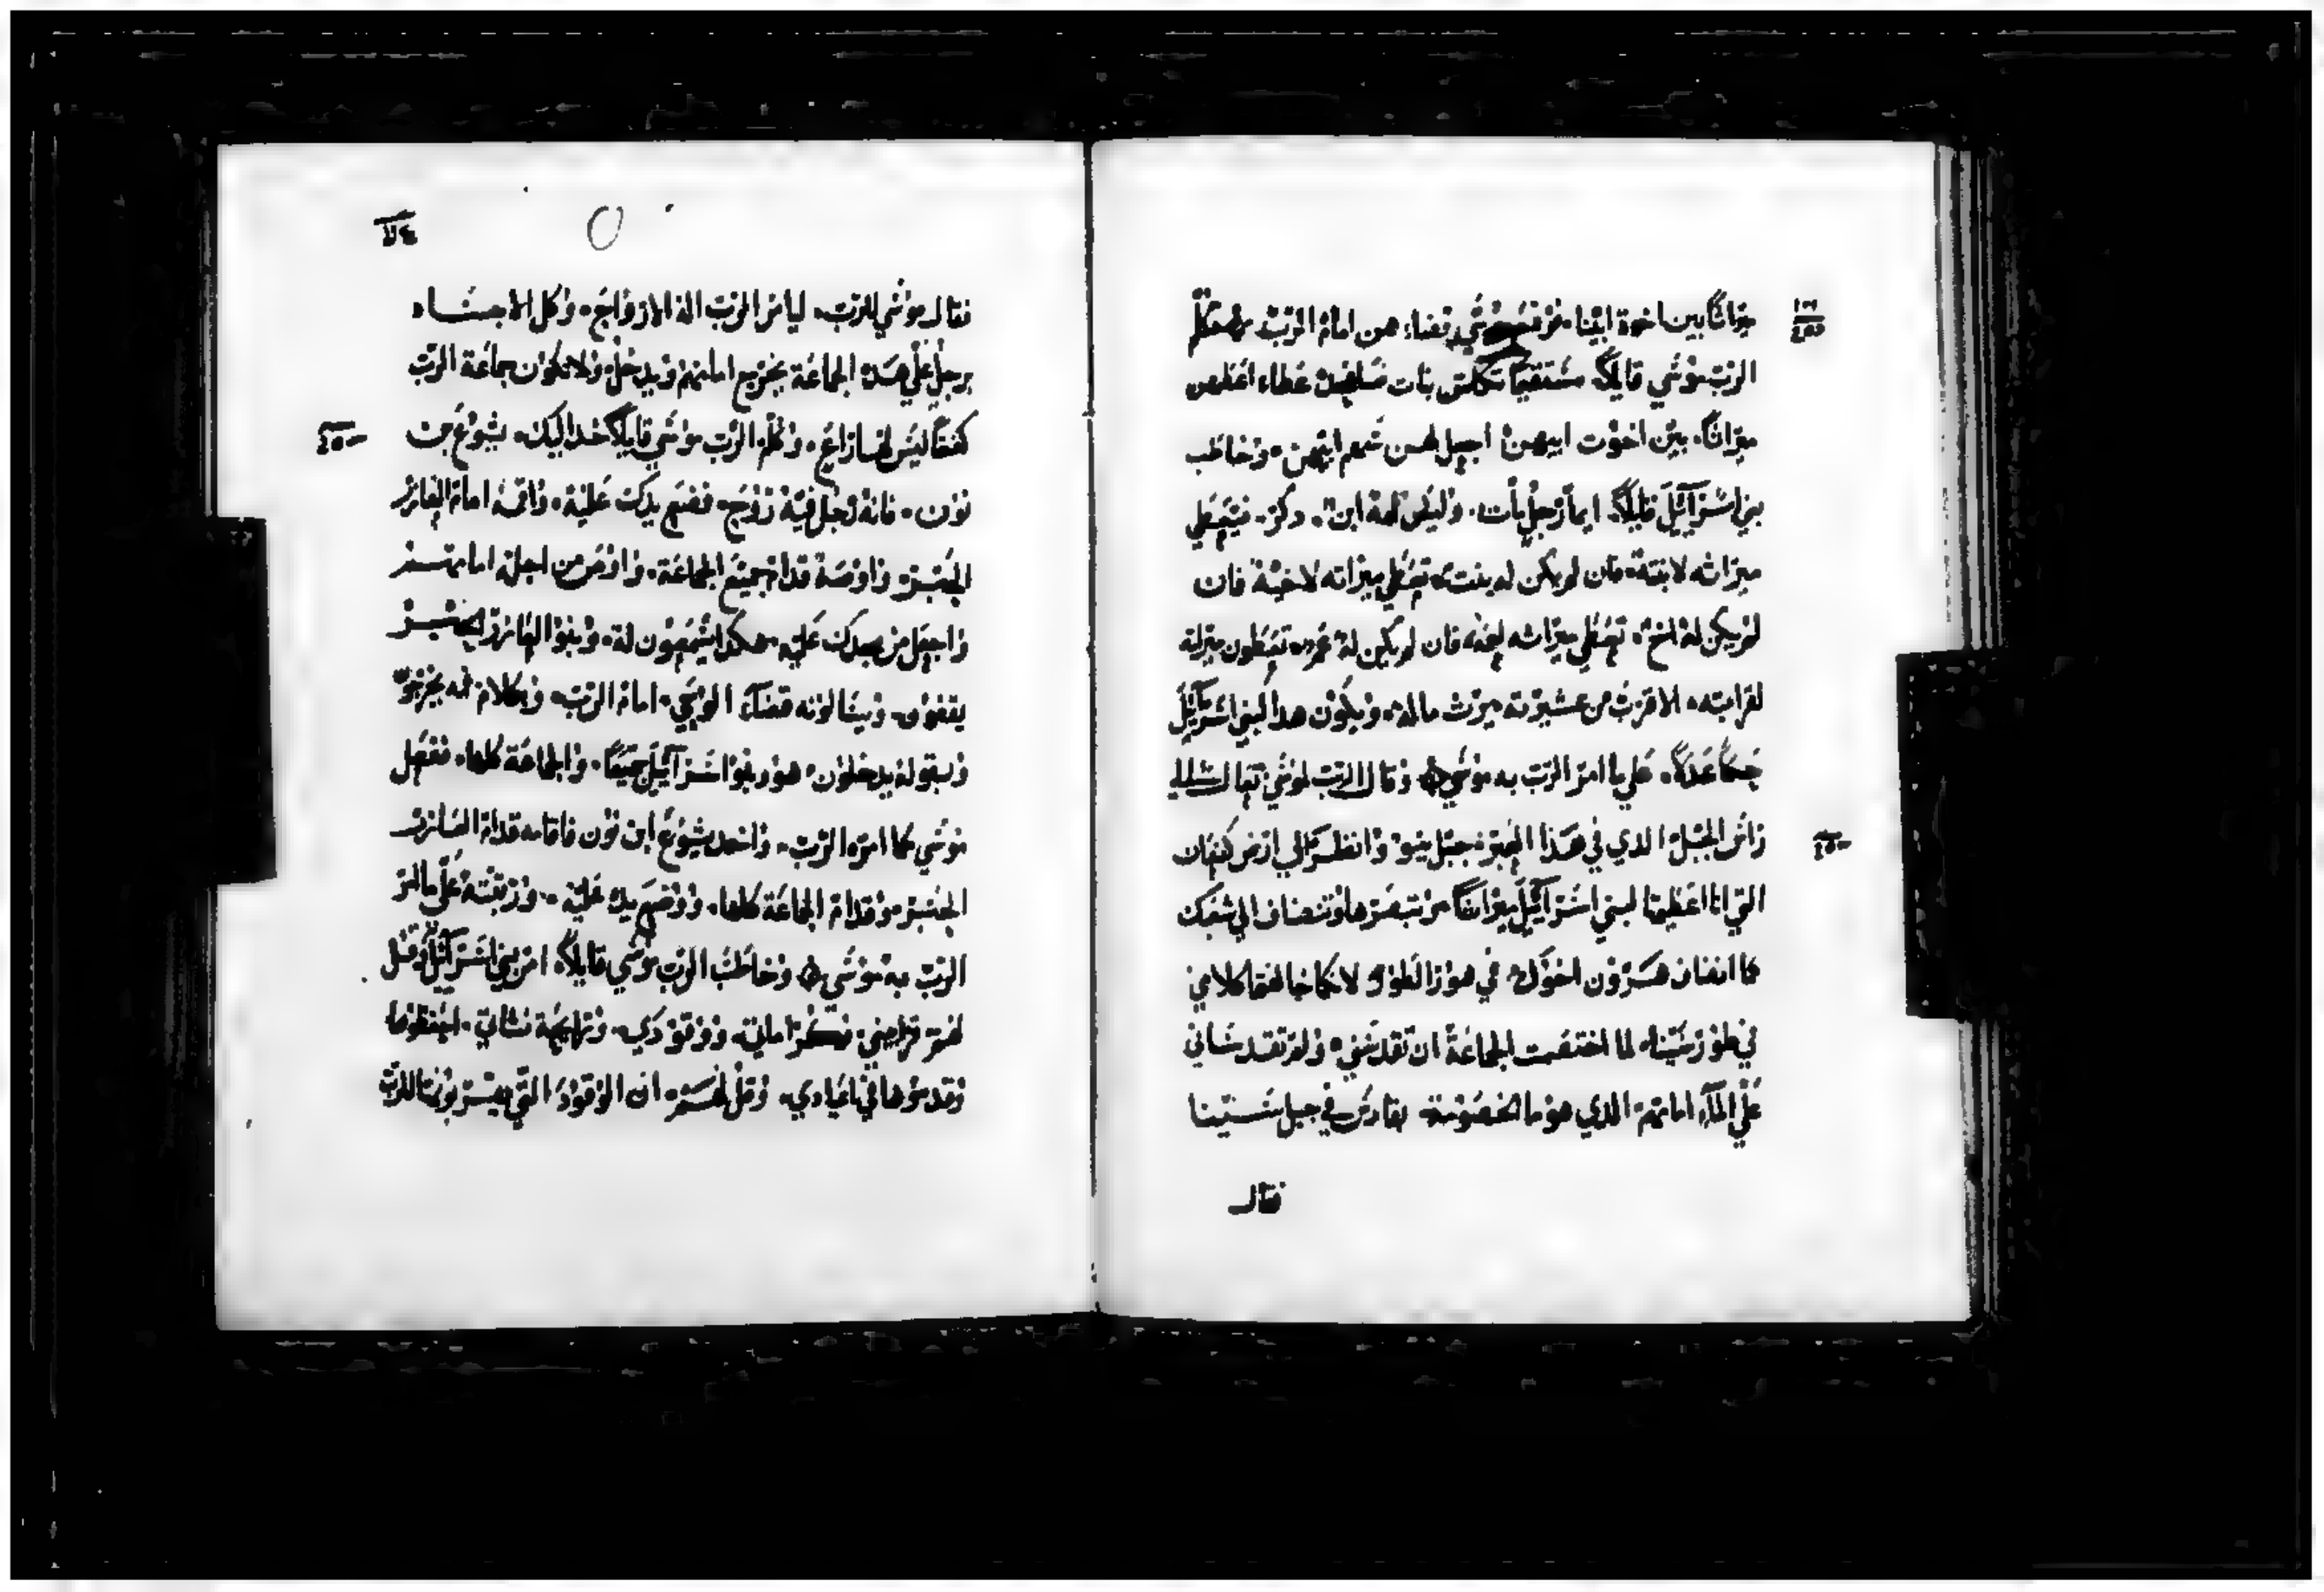 ميراثًا بين اخوة ابينا. فرفع موسي قضاءهن امام الرب فكلم
الرب موسي قايلاً مستقيمًا تكلمن بنات عطاء اعطهن
ميراثًا. بين اخوت ابيهن اجعل لهن سهم ابيهن. وخاطب
بني اسرآئيل قايلاً. ايما رجل مات. وليس له ابن. دكر. فيعطي
ميراثه لابنته. فان لم يكن له بنت. تعطي ميراثه لاخيه فان
لم يكن له اخ. تعطي ميراثه لعمه فان لم يكن له عم. تعطون ميراثه
لقرابته. الاقرب من عشيرته ميرث ماله. ويكون هدا لبني اسرآئيل
حكمًا عدلاً. علي ما امر الرب به موسي. وقال الرب لموسي تعال الي
راس الجبل الدي في هذا العبر. جبل نبو وانظر الي ارض كنعان
التي انا اعطيها لبني اسرآئيل ميراثًا تبصرها وتنضاف الي شعبك
كما انضاف هرون اخوك في هور الطور لانكما خالفتما كلامي
في طور سينا. لما اختصمت الجماعة ان تقدسني. ولم تقدساني
علي المآء امامهم. الدي هو ما الخصومة. بقادس في جبل سينا
فقال
فقال موسي للرب. ليامر الرب اله الارواح. وكل الاجساد
برجل علي هذه الجماعة يخرج امامهم ويدخل ولا تكون جماعة الرب
كغنمًا ليس لها راع. وكلم الرب موسي قايلاً خد اليك. يشوع بن
نون. فانه رجل فيه روح. فضع يدك عليه. واقمه امام العازر
الحبر. واوصه قدام جميع الجماعة. واوص من اجله امامهم
واجعل من مجدك عليه هكدا يسمعون له. وبنو العازر الحبر
يقفون. ويسالونه قضآء الوحي. امام الرب. وبكلام فمه يخرجوا
وبقوله يدخلون. هو وبنو اسرآئيل جميعًا. والجماعة كلها. ففعل
موسي كما امره الرب. واخد يشوع ابن نون فاقامه قدام العازر
الحبر وقدام الجماعة كلها. ووضع يده عليه. ورتبته علي ما امر
الرب به موسي. وخاطب الرب موسي قايلاً. امر بني اسرآئيل وقل
لهم قرابيني وكرامتي. ووقودي. ورايحة نشاتي. احفظوها
وقدموها في اعيادي. وقل لهم. ان الوقود التي تقربونها للرب